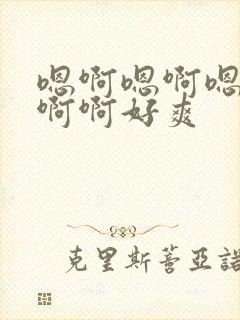 嗯啊嗯啊嗯
啊啊好爽
克里斯蒂亚诺